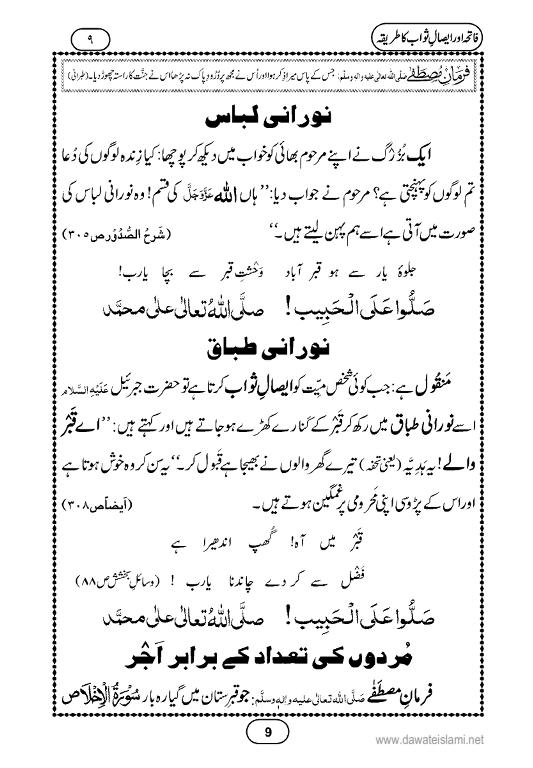 فاتحہ اور ایصالِ ثواب کا طریقہ
۹
فرمانِ مصطفےٰ صلی اللہ تعالیٰ علیہ والہٖ وسلم: جس کے پاس میرا ذکر ہوا اور اُس نے مجھ پر دُرُود پاک نہ پڑھا اس نے جنّت کا راستہ چھوڑ دیا۔ (طبرانی)
نورانی لباس
ایک بُزُرگ نے اپنے مرحوم بھائی کو خواب میں دیکھ کر پوچھا: کیا زندہ لوگوں کی دُعا
تم لوگوں کو پہنچتی ہے؟ مرحوم نے جواب دیا: ’’ہاں اللہ عَزَّوَجَلَّ کی قسم! وہ نورانی لباس کی
صورت میں آتی ہے اسے ہم پہن لیتے ہیں۔‘‘ (شَرحُ الصُّدُور ص ۳۰۵)
جلوۂ یار سے ہو قبر آباد وَحْشتِ قبر سے بچا یارب!
صَلُّوا عَلَی الْحَبِیب! صلَّی اللہُ تعالٰی علٰی محمَّد
نورانی طباق
مَنقُول ہے: جب کوئی شخص میّت کو ایصالِ ثواب کرتا ہے تو حضرت جبرئیل عَلَیْہِ السَّلام
اسے نورانی طباق میں رکھ کر قَبْر کے کنارے کھڑے ہو جاتے ہیں اور کہتے ہیں: ’’اے قَبْر
والے! یہ ہَدِیَّہ (یعنی تحفہ) تیرے گھر والوں نے بھیجا ہے قبول کر۔‘‘ یہ سن کر وہ خوش ہوتا ہے
اور اس کے پڑوسی اپنی محرومی پر غمگین ہوتے ہیں۔ (اَیضاً ص ۳۰۸)
قَبْر میں آہ! گُھپ اندھیرا ہے
فَضْل سے کر دے چاندنا یارب! (وسائلِ بخشش ص ۸۸)
صَلُّوا عَلَی الْحَبِیب! صلَّی اللہُ تعالٰی علٰی محمَّد
مُردوں کی تعداد کے برابر اَجْر
فرمانِ مصطفٰے صَلَّی اللہُ تعالیٰ علیہ والہٖ وسلَّم: جو قبرستان میں گیارہ بار سُوْرَۃُ الْاِخْلَاص
9
www.dawateislami.net